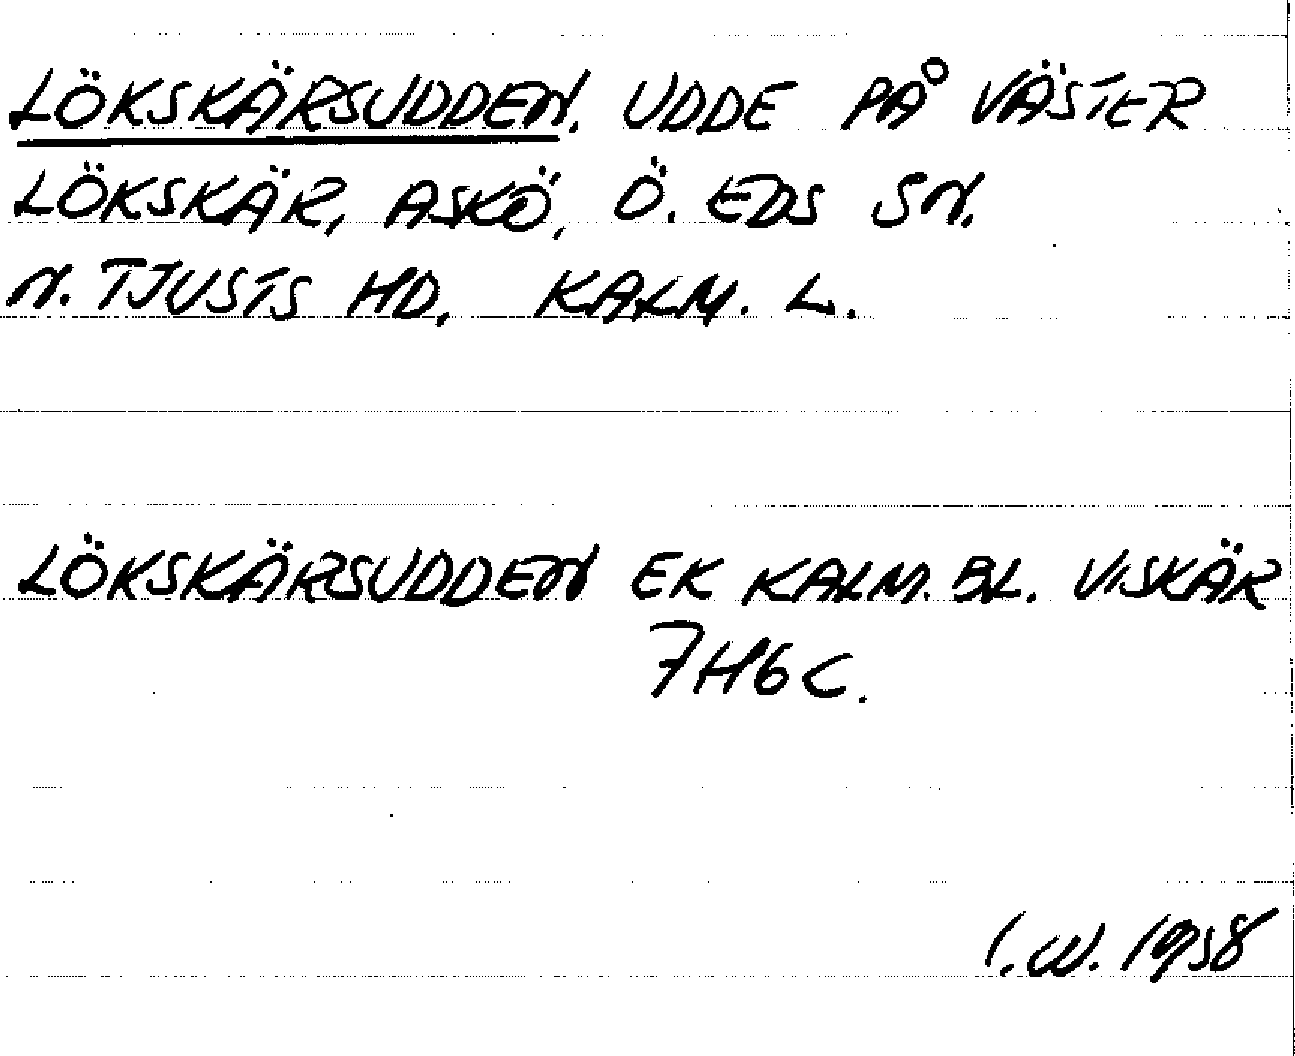 LÖKSKÄRSUDDEN. UDDE PÅ VÄSTER
LÖKSKÄR, ASKÖ, Ö. EDS SN.
N. TJUSTS HD, KALM. L.
LÖKSKÄRSUDDEN EK KALM. BL. VISKÄR
7H6C.
I.W. 1958